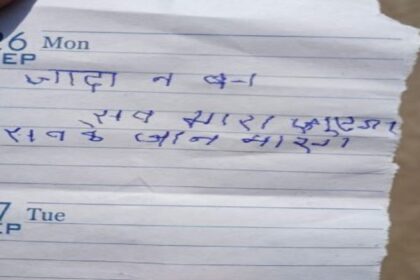 26 Mon
EP
जादा न बन
सब मारा जाएगा
सब के जान
7 Tue
EP